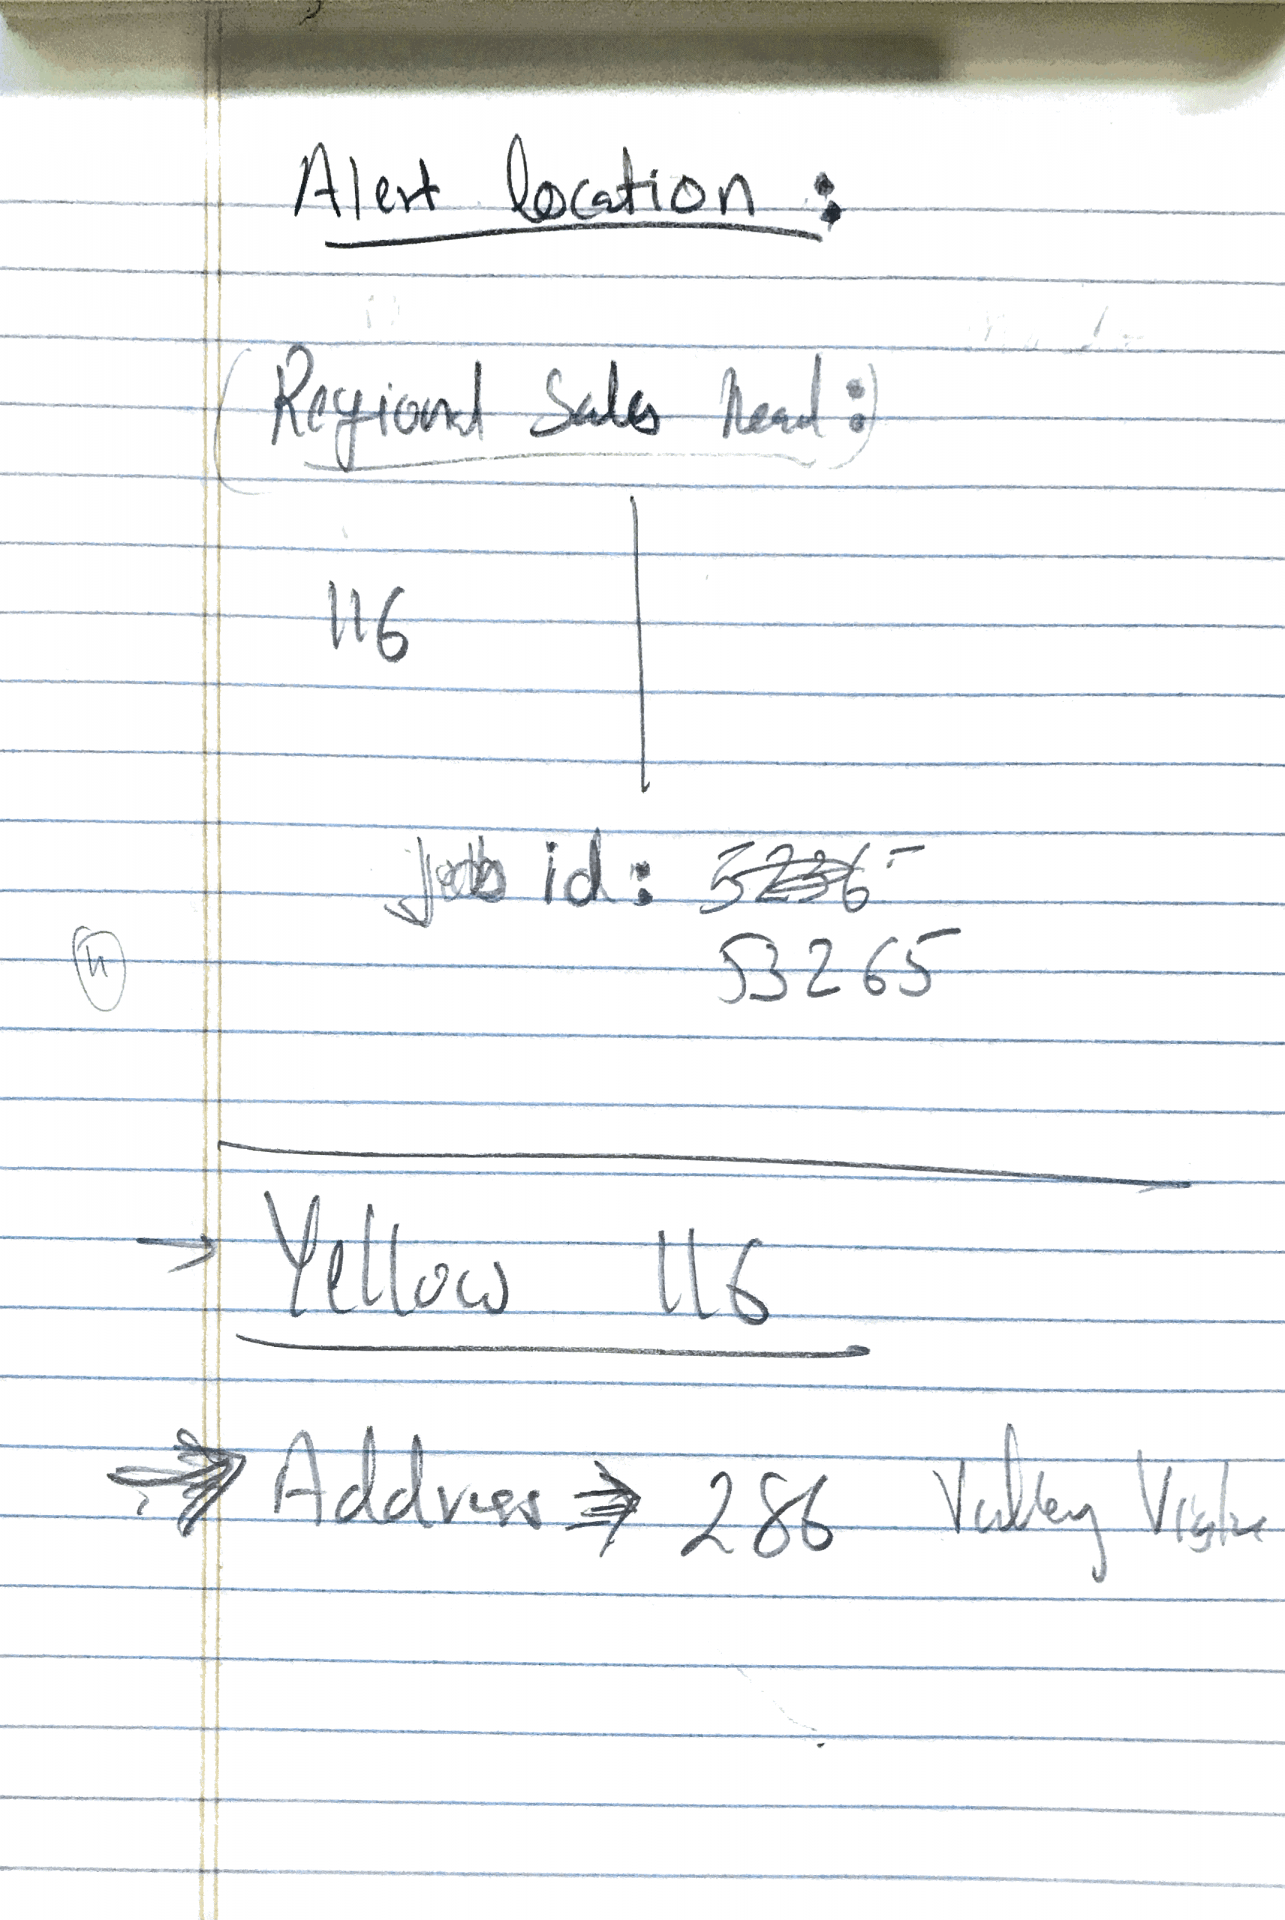 Alert location :
(Regional Sales head :)
116
job id : 5236
53265
→ Yellow 116
⇒ Address ⇒ 286 Valley Vista